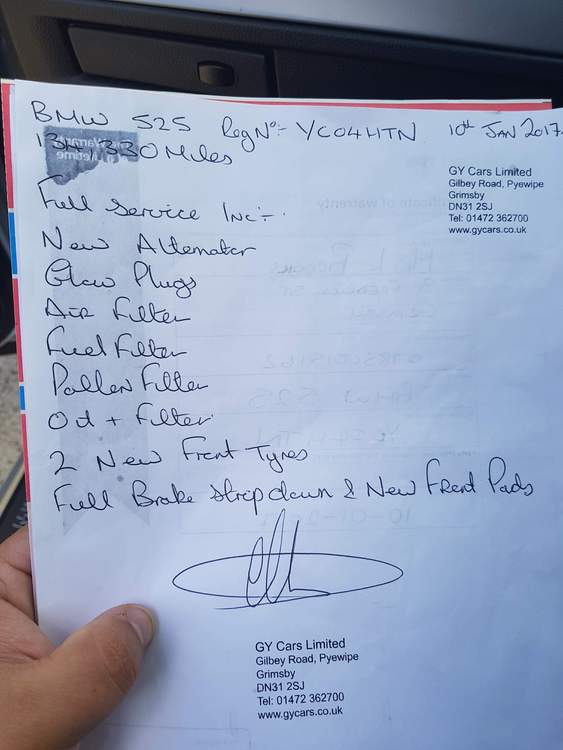 BMW 525 Reg No:- YC04HTN 10th JAN 2017
330 Miles
GY Cars Limited
Gilbey Road, Pyewipe
Grimsby
DN31 2SJ
Tel: 01472 362700
www.gycars.co.uk
Full Service Inc:-
New Alternator
Glow Plugs
Air Filter
Fuel Filter
Pollen Filter
Oil + Filter
2 New Front Tyres
Full Brake strip down & New Front Pads
GY Cars Limited
Gilbey Road, Pyewipe
Grimsby
DN31 2SJ
Tel: 01472 362700
www.gycars.co.uk